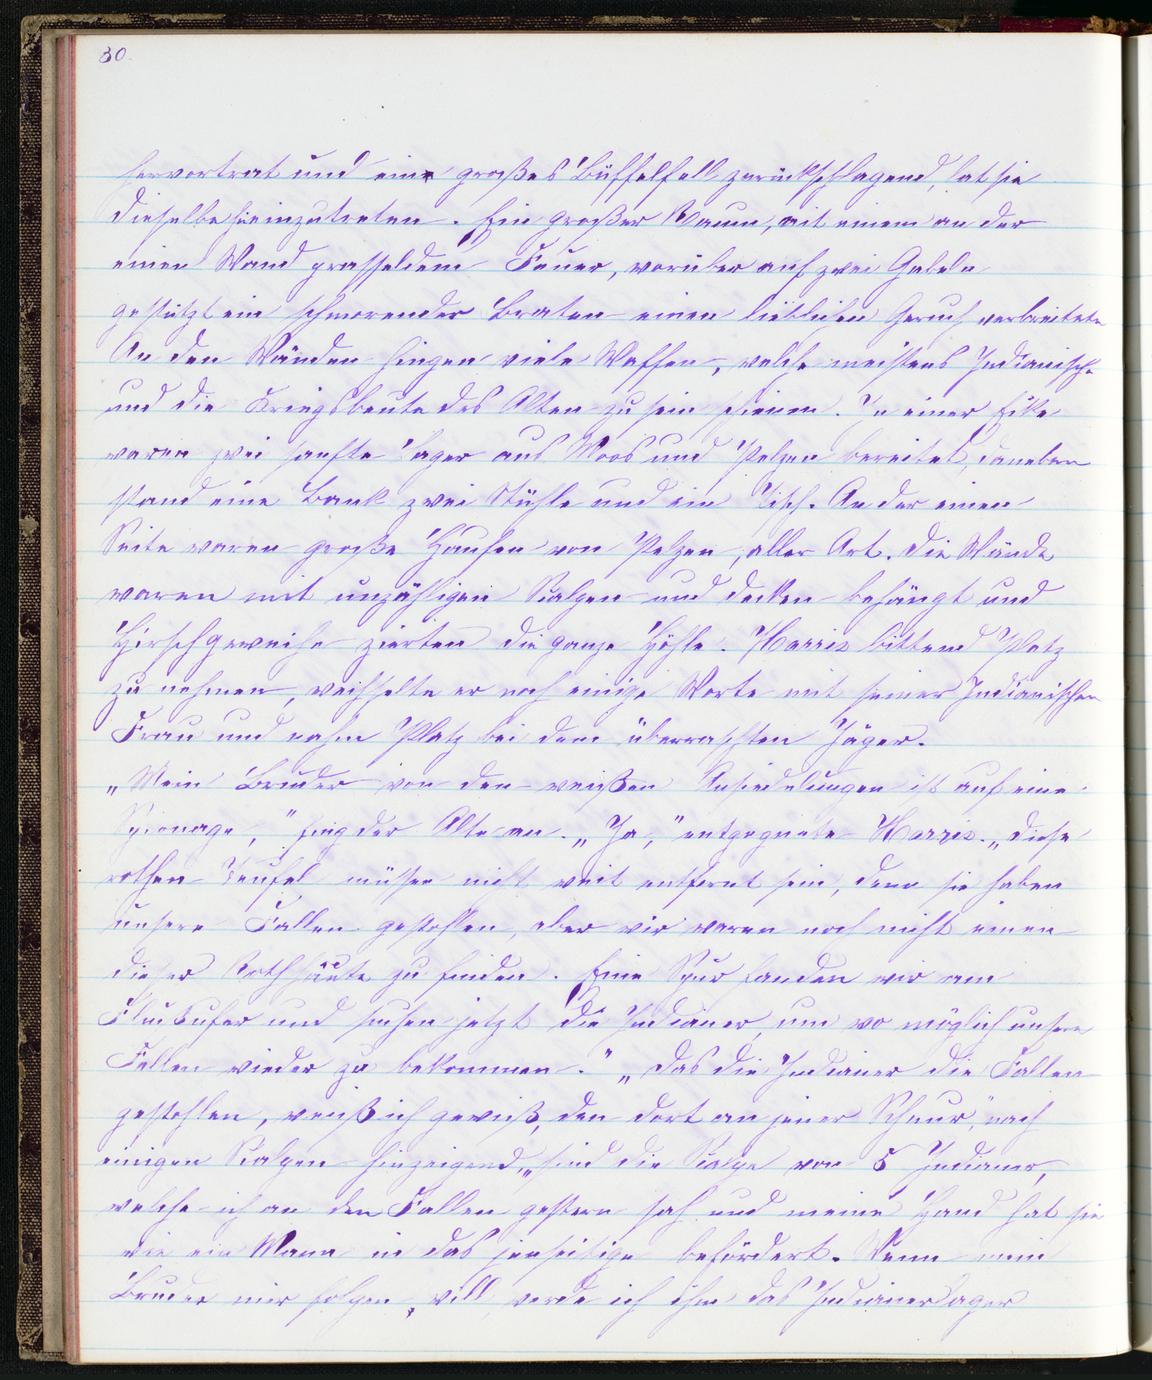 30.
hervortrat und eine großes Büffelfell zurückschlagend, bat sie
dieselbe hereinzutreten. Ein großer Raum, mit einem an der
einen Wand prasseldem Feuer, worüber auf zwei Gabeln
gestützt ein schmorender Braten einen lieblichen Geruch verbreitete
An den Wänden hingen viele Waffen, welche meistens Indianische
und die Kriegsbeute des Alten zu sein schienen. In einer Ecke
waren zwei sanfte Lager aus Moos und Pelzen bereitet, daneben
stand eine Bank zwei Stühle und ein Tisch. An der einen
Seite waren große Haufen von Pelzen, aller Art. Die Wände
waren mit unzähligen Skalpen und Decken behängt und
Hirschgeweihe zierten die ganze Höhle. Harris bittend Platz
zu nehmen, wechselte er noch einige Worte mit seiner Indianischen
Frau und nahm Platz bei dem überraschten Jäger.
„Mein Bruder von den weißen Ansiedelungen ist auf eine
Spionage," fing der Alte an. „Ja," entgegnete Harris. „diese
rothen Teufel müssen nicht weit entfernt sein, denn sie haben
unsere Fallen gestohlen, aber wir waren noch nicht einen
dieser Rothhäute zu finden. Eine Spur fanden wir am
Flußufer und suchen jetzt die Indianer, um wo möglich unsere
Fallen wieder zu bekommen." „Das die Indianer die Fallen
gestohlen, weiß ich gewiß, den dort an jener Schnur," nach
einigen Skalpen hinzeigend, „sind die Skalpe von 5 Indianer,
welche ich an den Fallen gestern sah und meine Hand hat sie
wie ein Mann in das jenseitige befördert. Wenn mein
Bruder mir folgen, will, werde ich ihm das Indianerlager